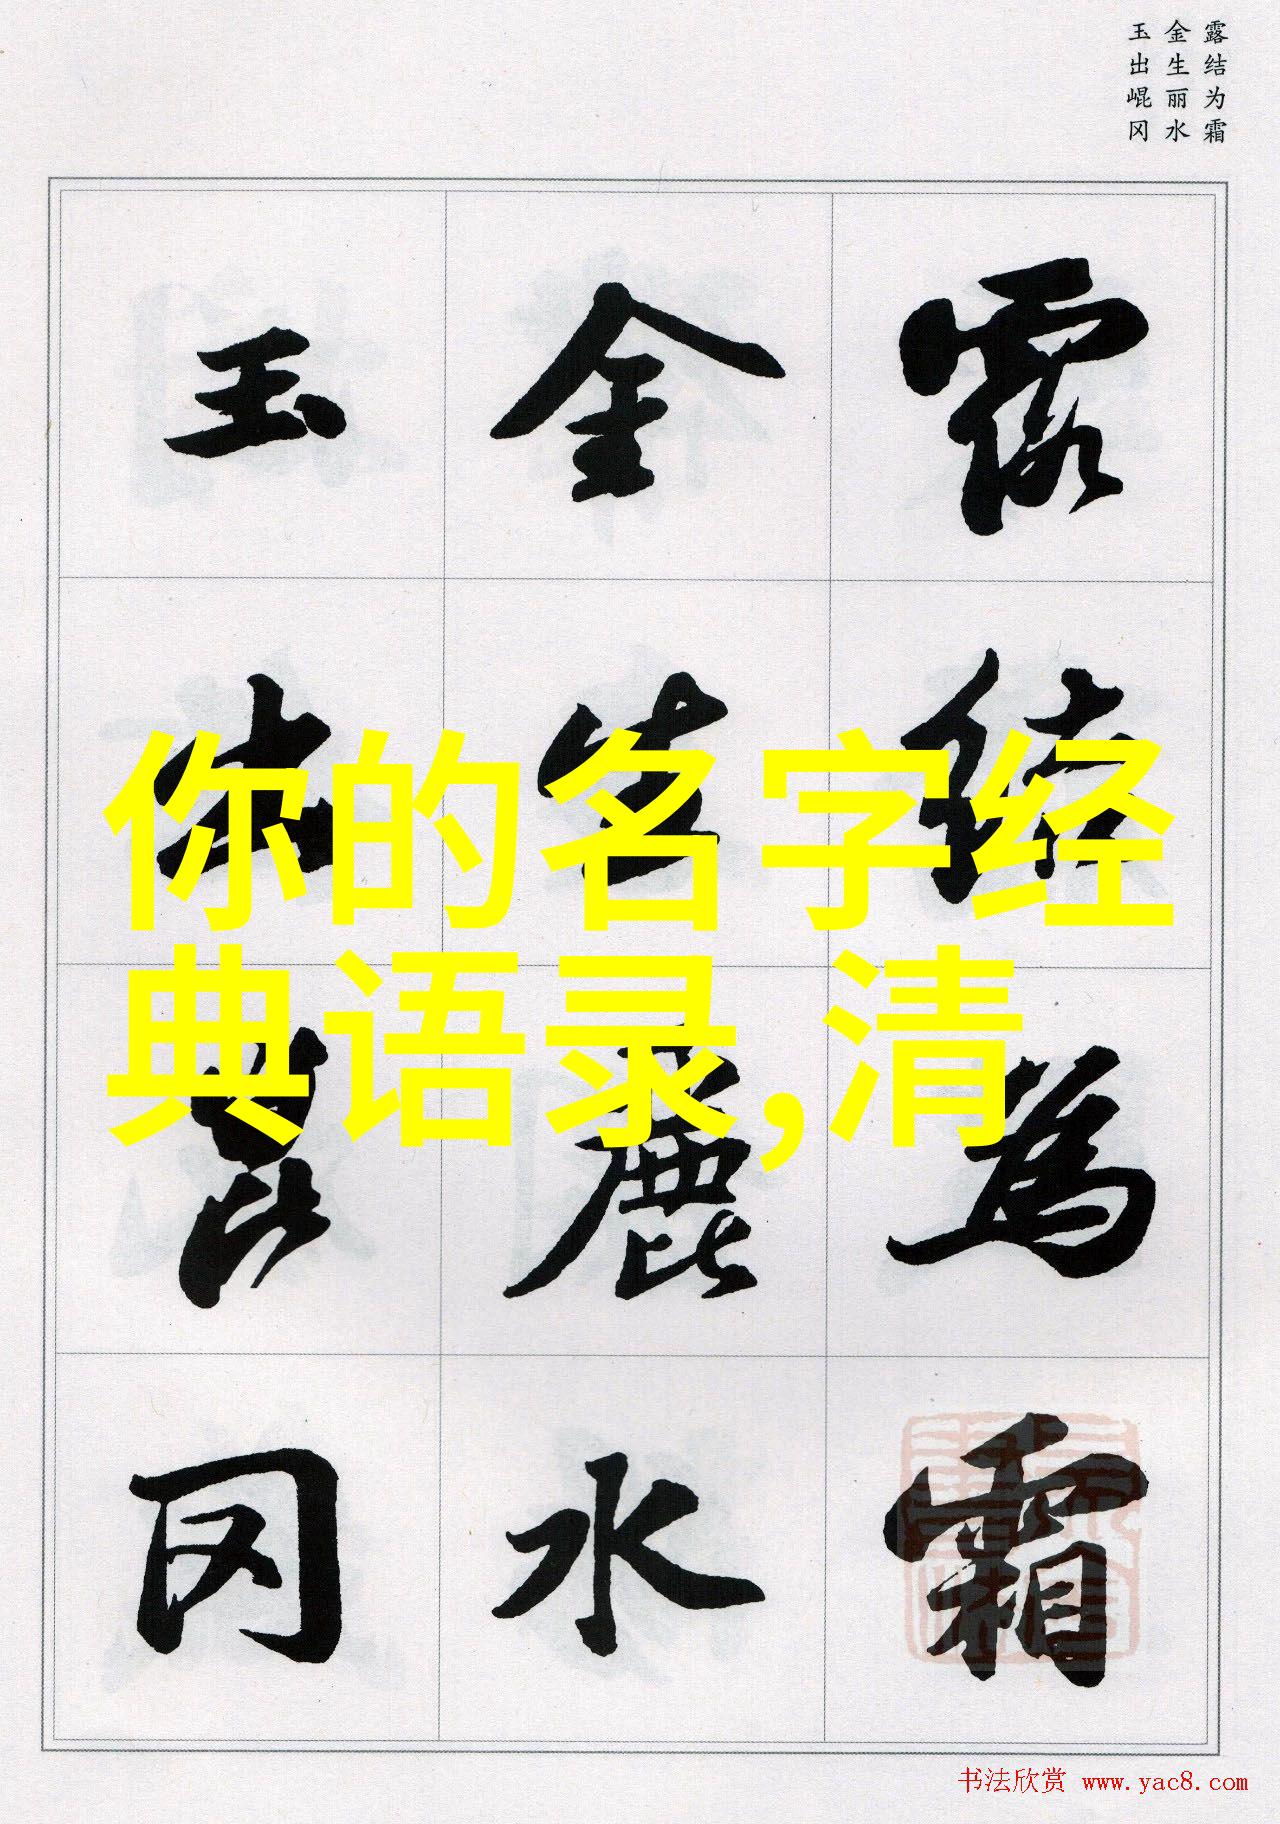 露结为霜
金生丽水
玉出崐冈
露结为霜
金生麗水
玉出崑冈
你的名字经
典语录,清
书法欣赏 www.yac8.com